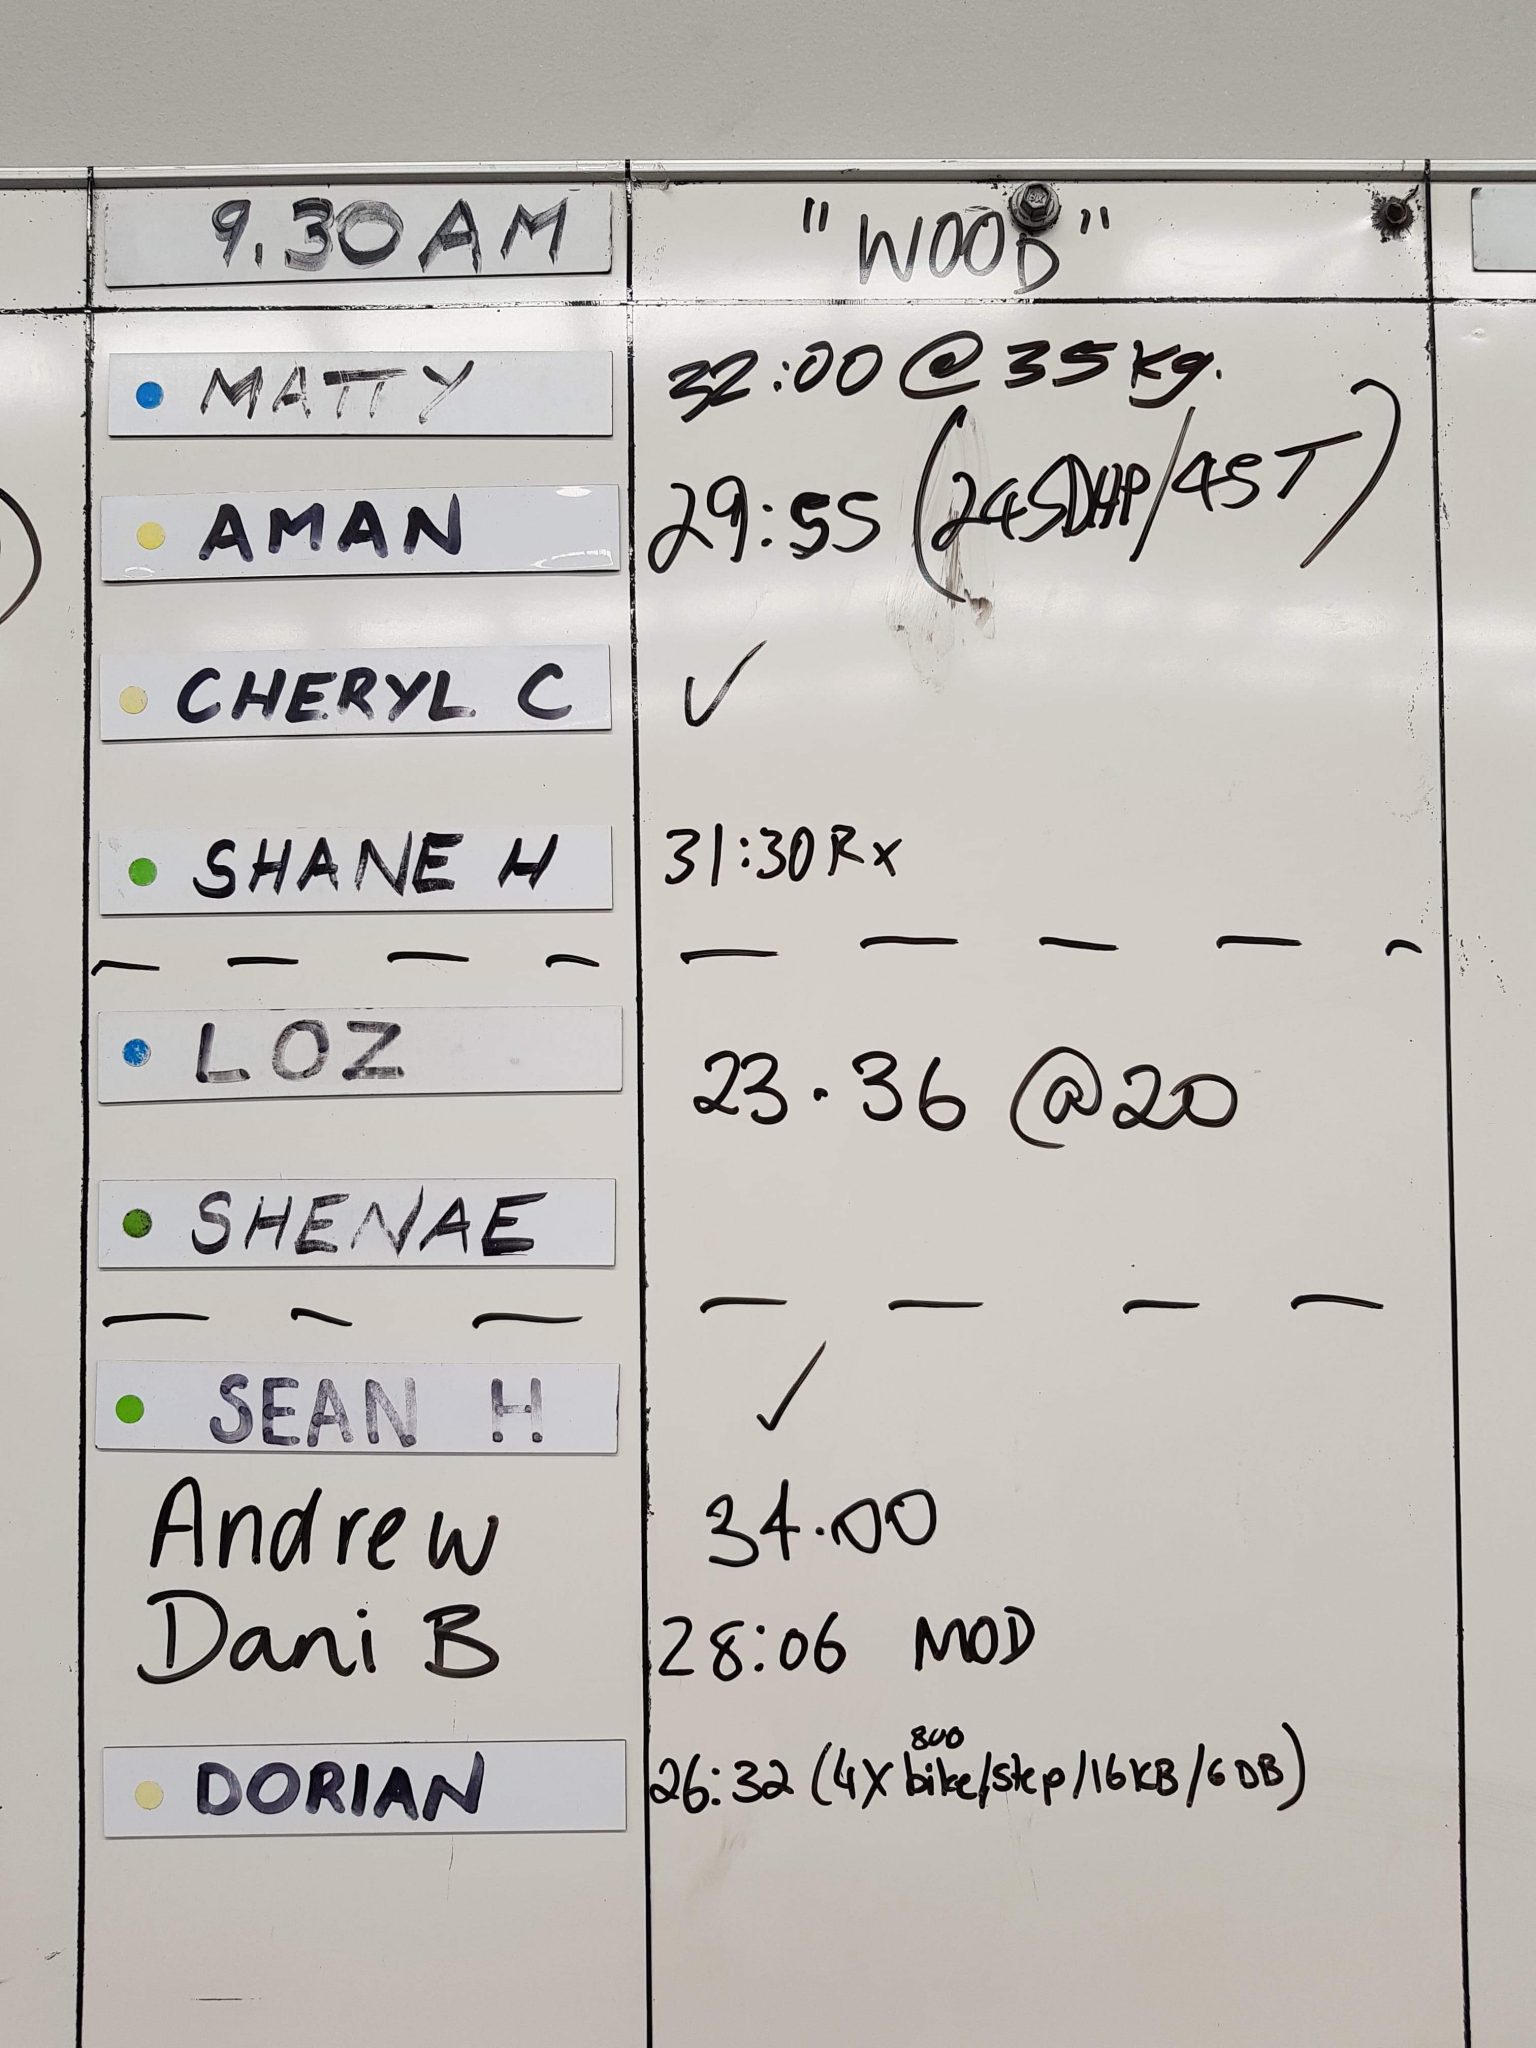 9.30AM "WOOD"
MATTY 32:00 @ 35kg.
AMAN 29:55 (24SDHP/45T)
CHERYL C ✓
SHANE H 31:30 Rx
LOZ 23.36 @20
SHENAE
SEAN H ✓
Andrew 34.00
Dani B 28:06 MOD
800
DORIAN 26:32 (4X bike/step/16KB/6DB)